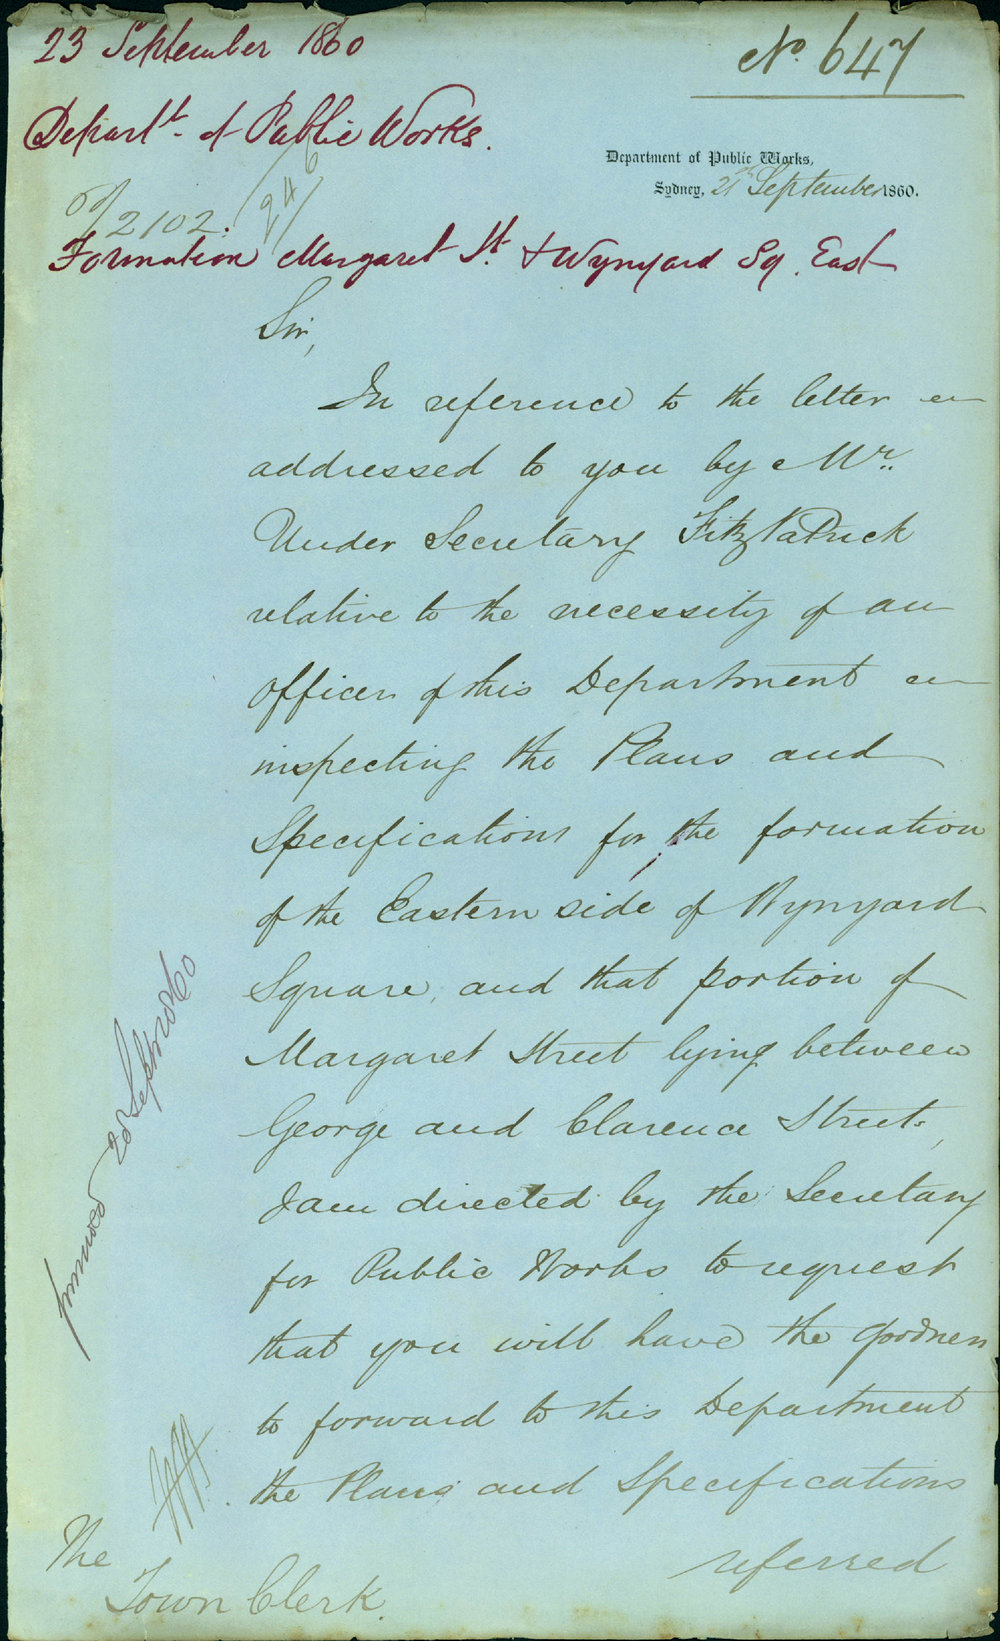 23 September 1860
No. 647
Depart^t. of Public Works.
Department of Public Works,
Sydney, 21st September 1860.
60/2102. 24/6
Formation Margaret St. & Wynyard Sq. East
Sir,
In reference to the letter
addressed to you by Mr.
Under Secretary FitzPatrick
relative to the necessity of an
Officer of this Department
inspecting the Plans and
Specifications for the formation
of the Eastern side of Wynyard
Square, and that portion of
Margaret Street lying between
George and Clarence Streets,
I am directed by the Secretary
for Public Works to request
that you will have the goodness
to forward to this Department
the Plans and Specifications
referred
The
Town Clerk.